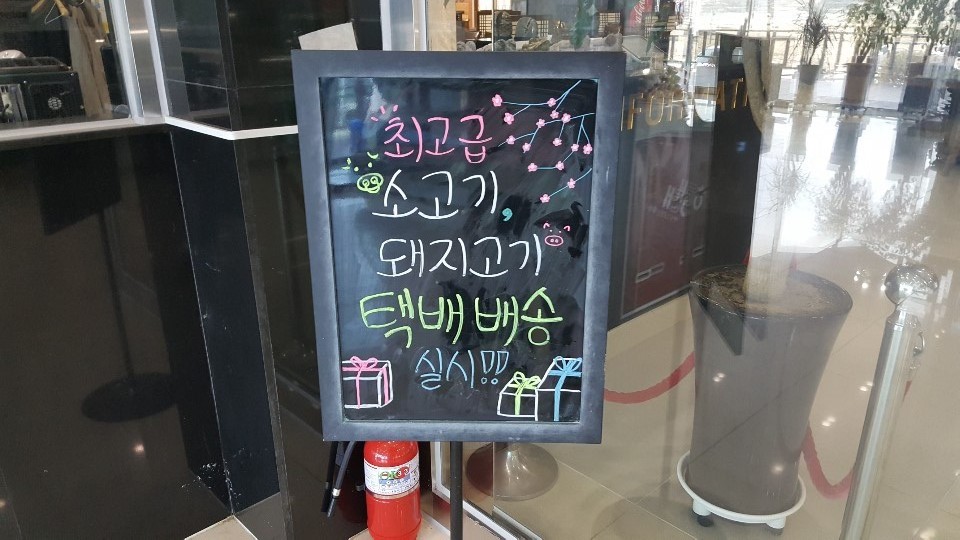 최고급
소고기,
돼지고기
택배 배송
실시!!